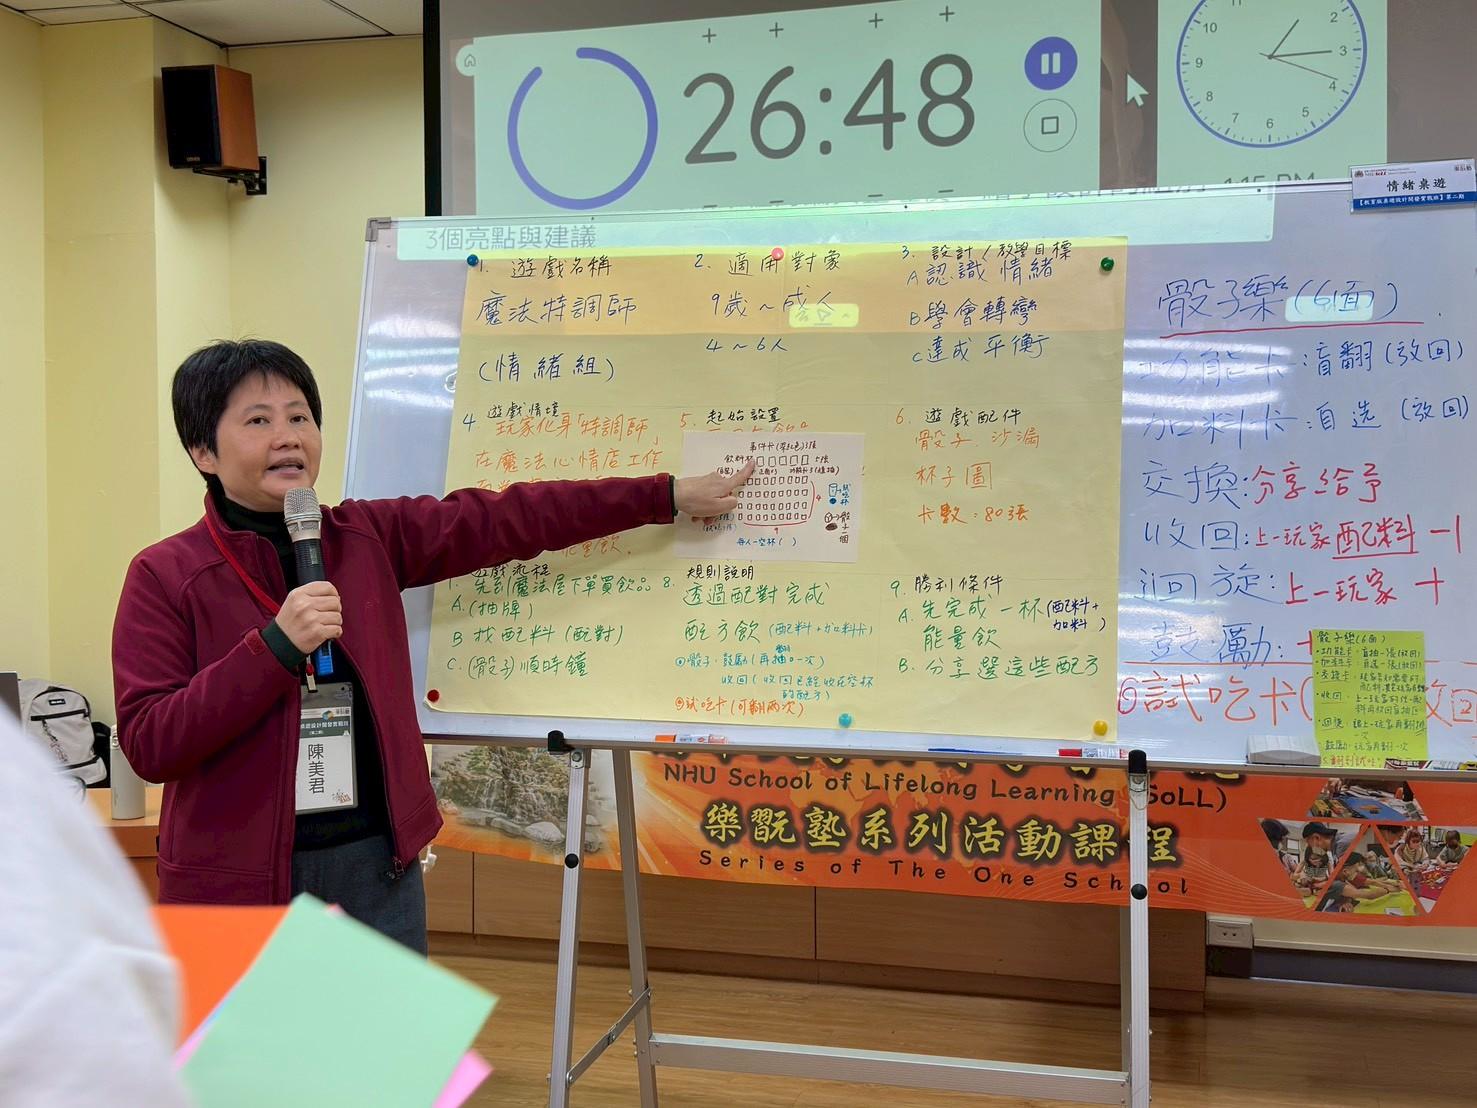 26:48
11
10
9
8
7
6
5
4
3
2
1:15 PM
3個亮點與建議
情緒桌遊
【教育版桌遊設計開發實戰班】第二期
1. 遊戲名稱
魔法特調師
(情緒組)
2. 適用對象
9歲~成人
4~6人
3. 設計/教學目標
A 認識情緒
B 學會轉彎
C 達成平衡
4. 遊戲情境
玩家化身「特調師」
在魔法心情店工作
能量飲.
5. 起始設置
每人一空杯( )
6. 遊戲配件
骰子.沙漏
杯子圖
卡數:80張
遊戲流程
1. 先到魔法屋下單買飲品
A.(抽牌)
B 找配料(配對)
C.(骰子)順時鐘
8. 規則說明
透過配對完成
配方飲(配料+加料卡)
骰子.鼓勵(再抽一次)
收回(收回已經收在空杯
的配方)
試吃卡(可翻兩次)
9. 勝利條件
A. 先完成一杯(配料+
加料)
能量飲
B. 分享選這些配方
骰子樂(6面)
功能卡:盲翻(放回)
加料卡:自選(放回)
交換:分享給予
收回:上一玩家配料-1
迴旋:上一玩家+
鼓勵:
試吃卡(
骰子樂(6面)
陳美君
NHU School of Lifelong Learning (SoLL)
樂翫塾系列活動課程
Series of The One School